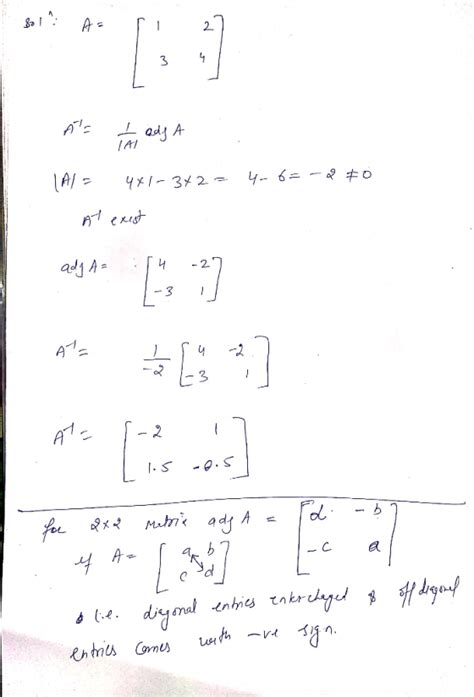 Solⁿ: A = [ 1 2
3 4 ]
A⁻¹ = 1/|A| adj A
|A| = 4×1 - 3×2 = 4 - 6 = -2 ≠ 0
A⁻¹ exist
adj A = [ 4 -2
-3 1 ]
A⁻¹ = 1/-2 [ 4 -2
-3 1 ]
A⁻¹ = [ -2 1
1.5 -0.5 ]
for 2×2 matrix adj A = [ d -b
-c a ]
if A = [ a b
c d ]
i.e. diagonal entries interchaged & off diagonal
entries comes with -ve sign.